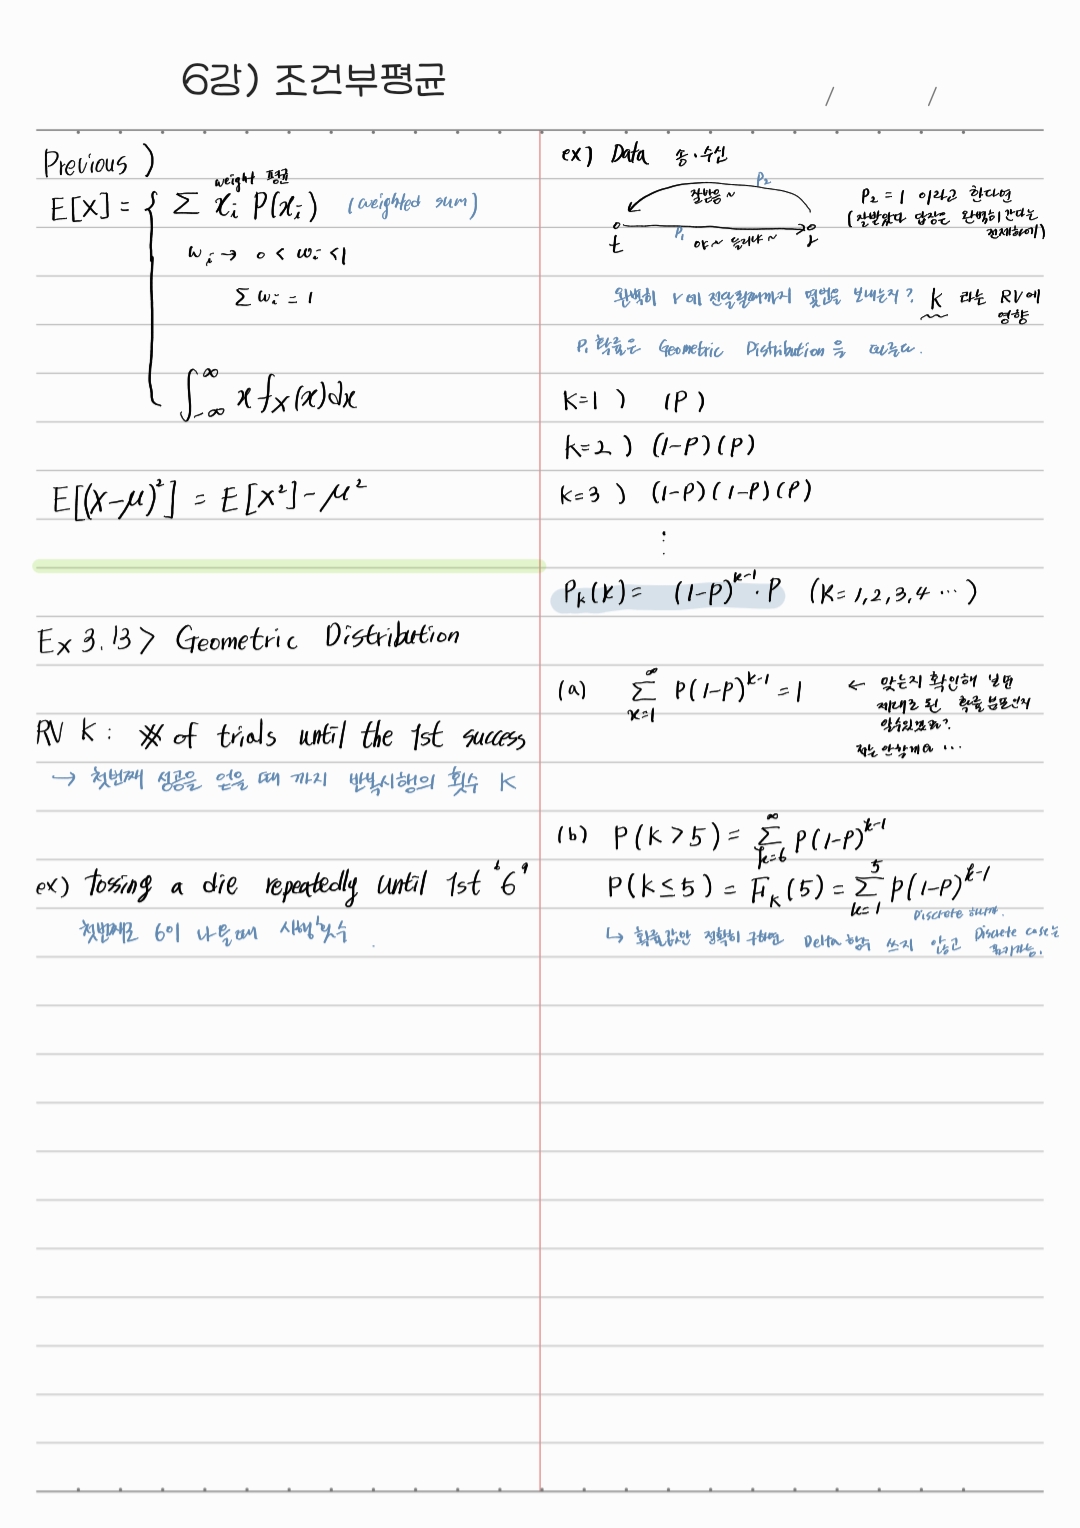 6강) 조건부평균
/ /
Previous )
weight 평균
E[X] = { Σ xᵢ P(xᵢ) (weighted sum)
wᵢ → 0 < wᵢ < 1
Σ wᵢ = 1
∫_{-∞}^{∞} x f_X(x)dx
E[(X-μ)²] = E[X²] - μ²
Ex 3.13> Geometric Distribution
RV K : # of trials until the 1st success
↳ 첫번째 성공을 얻을 때 까지 반복시행의 횟수 K
ex) tossing a die repeatedly until 1st "6"
첫번째로 6이 나올때 시행횟수
ex) Data 송·수신
잘받음 ~ P₂
t P₁ 야~ 들리냐~ r
P₂ = 1 이라고 한다면
(잘받았다 답장은 완벽히 간다는
전제하에)
완벽히 r에 전달될때까지 몇번을 보내는지? k 라는 RV에
영향
P₁ 확률은 Geometric Distribution을 따른다.
K=1 ) (P)
k=2 ) (1-P)(P)
k=3 ) (1-P)(1-P)(P)
⋮
P_k(k) = (1-P)^{k-1} · P (K= 1,2,3,4 ⋯ )
(a) Σ_{x=1}^{∞} P(1-P)^{k-1} = 1 ← 맞는지 확인해 보면
제대로 된 확률 분포인지
알수있겠죠?
저는 안할게요 ⋯
(b) P(k>5) = Σ_{k=6}^{∞} P(1-P)^{k-1}
P(k≤5) = F_K(5) = Σ_{k=1}^{5} P(1-P)^{k-1}
Discrete 하니까.
↳ 확률값만 정확히 구하면 Delta 함수 쓰지 않고 Discrete case는